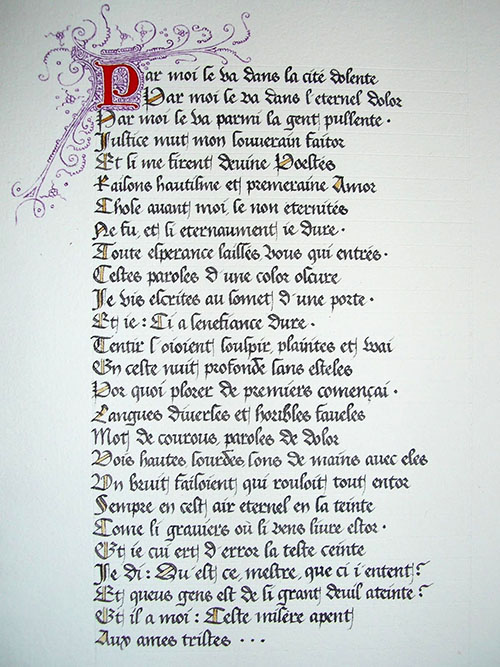 Par moi se va dans la cité dolente
Par moi se va dans l'eternel dolor
Par moi se va parmi la gent pullente ·
Justice mut mon souverain faitor
Et si me firent devine Poestés
Raisons hautisme et premeraine Amor
Chose avant moi se non eternités
Ne fu, et si eternaument ie dure ·
Toute esperance laissés vous qui entrés ·
Cestes paroles d'une color oscure
Je vis escrites au somet d'une porte ·
Et ie : Ci a senefiance dure ·
Tentir s'oioient souspir, plaintes et wai
En ceste nuit profonde sans esteles
Por quoi plorer de premiers començai ·
Langues diverses et horibles faveles
Mot de courous, paroles de dolor
Vois hautes sourdes sons de mains avec eles
Un bruit faisoient qui rouloit tout entor
Sempre en cest air eternel en la teinte
Come li graviers où li vens livre estor ·
Et ie cui ert d'error la teste ceinte
Je di : Qu'est ce, mestre, que ci i'entent?
Et queus gens est de si grant deuil ateinte?
Et il a moi : Ceste misère apent
Aux ames tristes · · ·